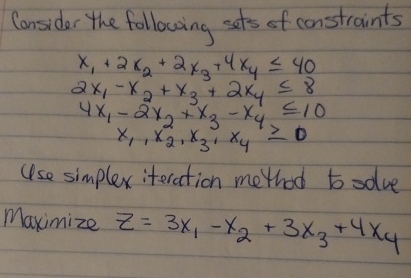 Consider the following sets of constraints
x₁ + 2x₂ + 2x₃ + 4x₄ ≤ 40
2x₁ - x₂ + x₃ + 2x₄ ≤ 8
4x₁ - 2x₂ + x₃ - x₄ ≤ 10
x₁, x₂, x₃, x₄ ≥ 0
Use simplex iteration method to solve
Maximize Z = 3x₁ - x₂ + 3x₃ + 4x₄